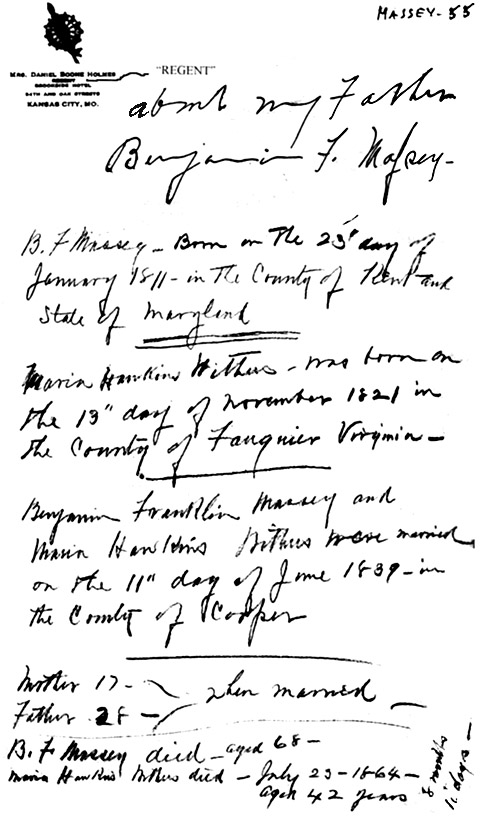 MASSEY - 55
MRS. DANIEL BOONE HOLMES
REGENT
BROOKSIDE HOTEL
54TH AND OAK STREETS
KANSAS CITY, MO.
"REGENT"
about my Father
Benjamin F. Massey -
B. F Massey - Born on the 25" day of
January 1811 - in the County of Kent and
State of Maryland
Maria Hawkins Withers - was born on
the 13" day of November 1821 in
the County of Fauquier Virginia -
Benjamin Franklin Massey and
Maria Hawkins Withers were married
on the 11" day of June 1839 - in
the County of Cooper
Mother 17 -
Father 28 -
when married -
B. F Massey died - aged 68 -
Maria Hawkins Withers died - July 25 - 1864 -
aged 42 years
8 months
11 days -